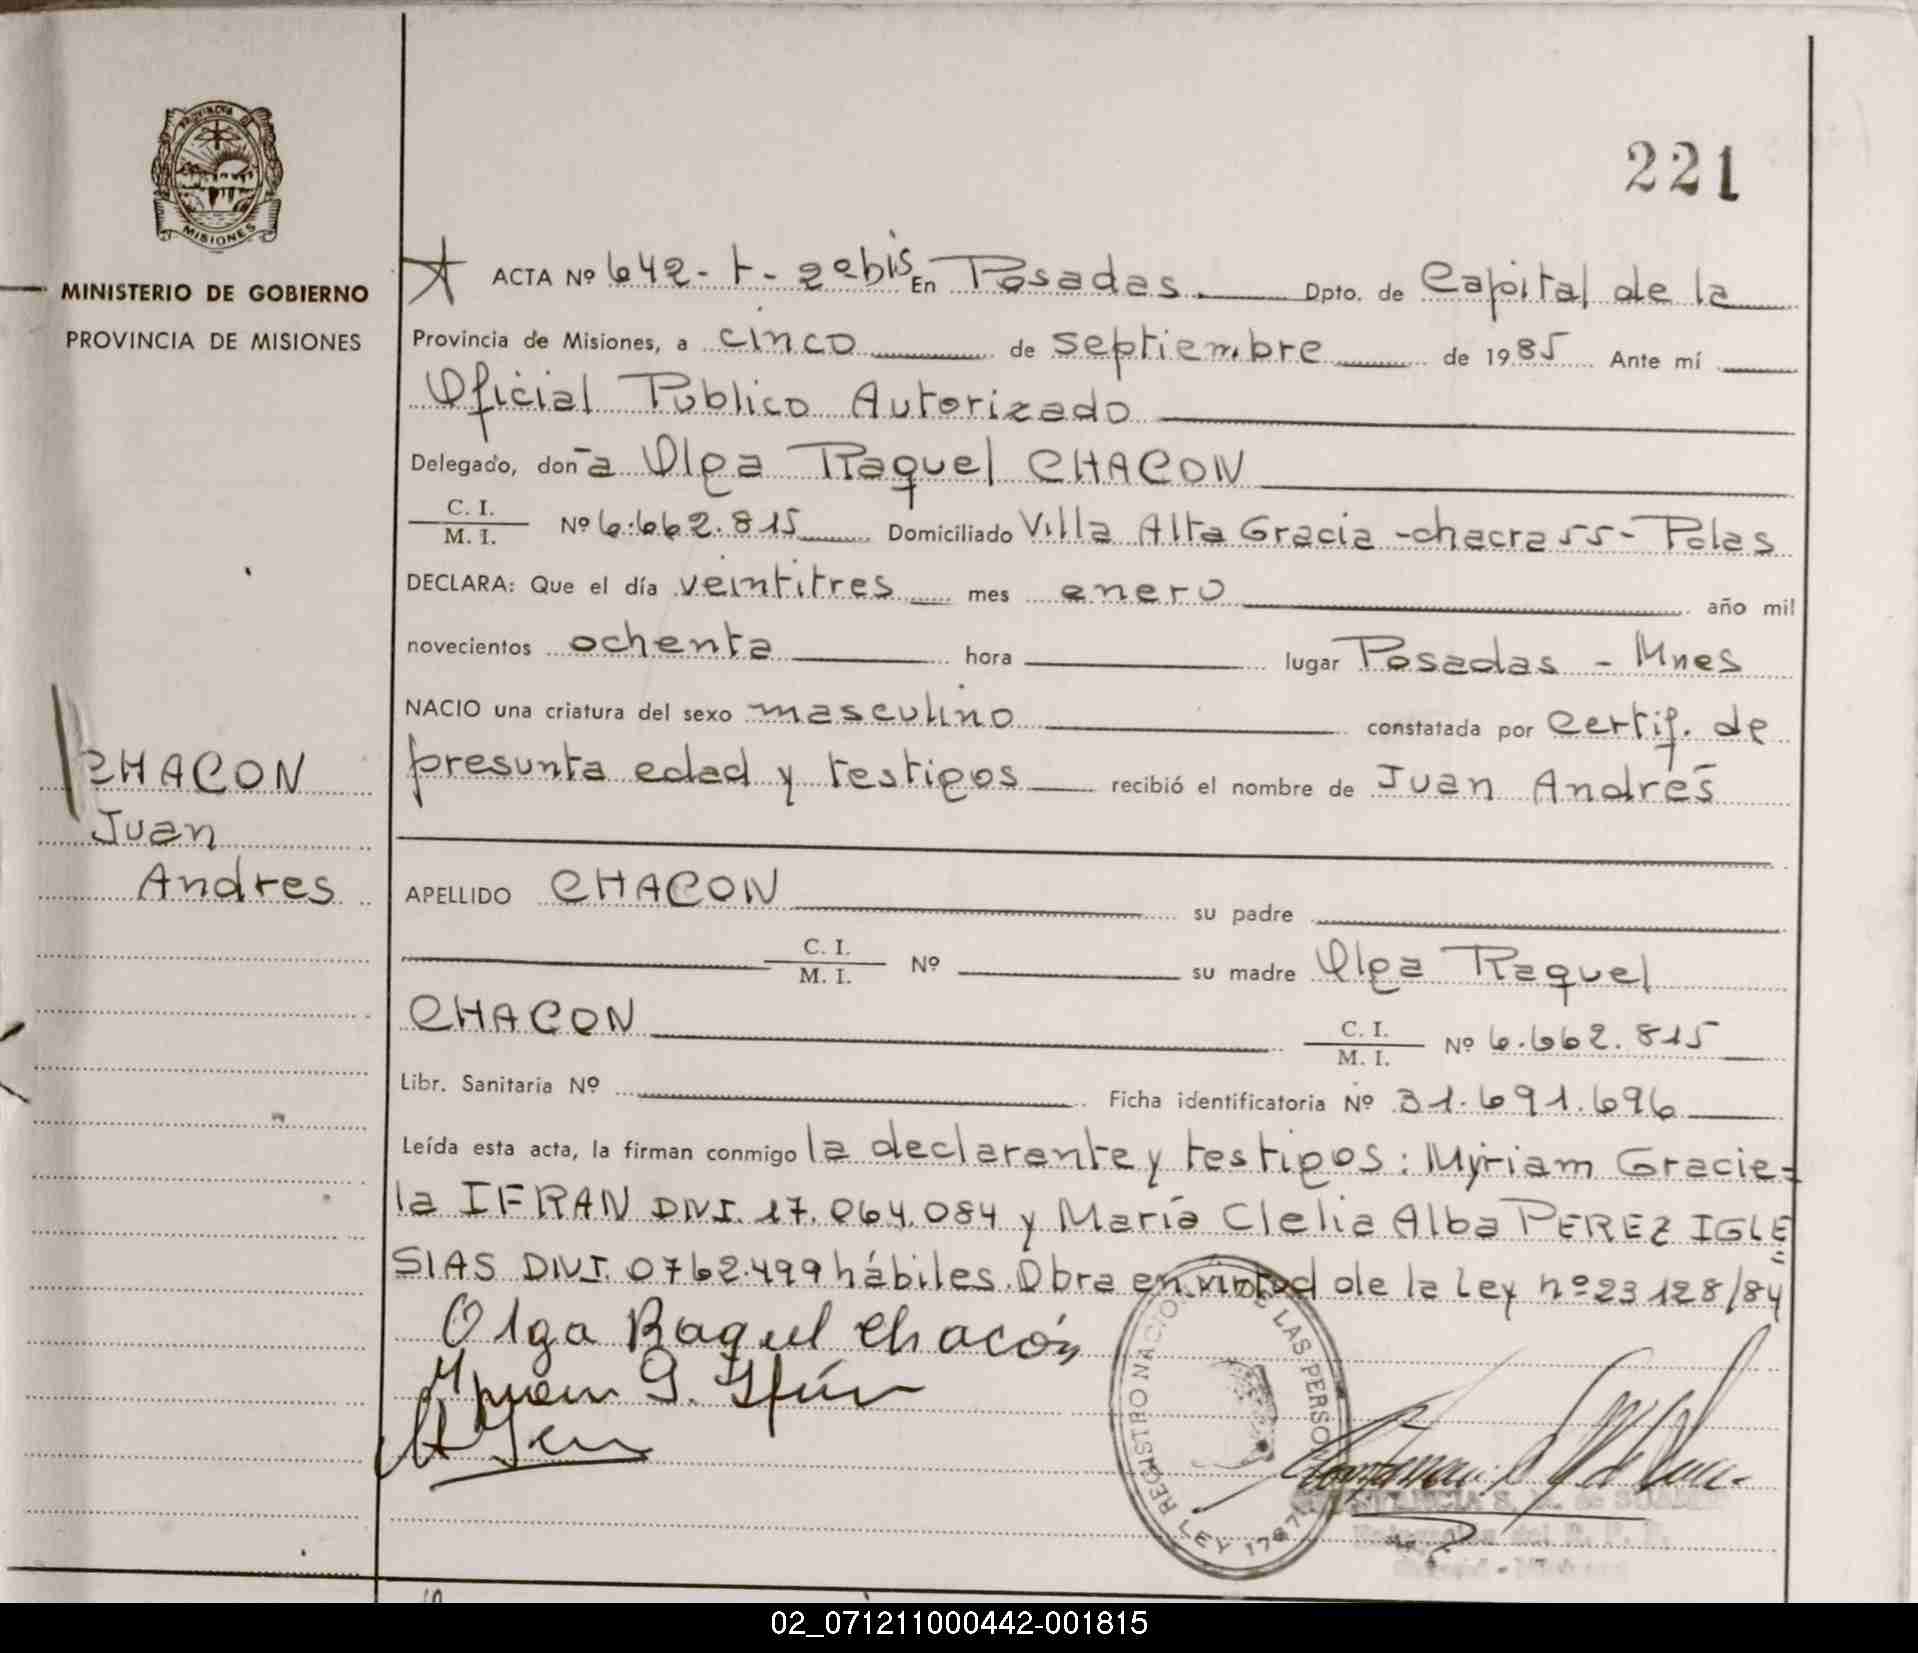 PROVINCIA DE
MISIONES
221
MINISTERIO DE GOBIERNO
PROVINCIA DE MISIONES
ACTA Nº 642- t - 2ºbis En Posadas Dpto. de Capital de la
Provincia de Misiones, a cinco de septiembre de 1985 Ante mí
Oficial Publico Autorizado
Delegado, don~a Olga Raquel CHACON
C. I.
M. I. Nº 6.662.815 Domiciliado Villa Alta Gracia -chacra 55- Pdas
DECLARA: Que el día veintitres mes enero año mil
novecientos ochenta hora lugar Posadas - Mnes
NACIO una criatura del sexo masculino constatada por Certif. de
presunta edad y testigos recibió el nombre de Juan Andrés
CHACON
Juan
Andres
APELLIDO CHACON su padre
C. I.
M. I. Nº su madre Olga Raquel
CHACON C. I.
M. I. Nº 6.662.815
Libr. Sanitaria Nº Ficha identificatoria Nº 31.691.696
Leída esta acta, la firman conmigo la declarante y testigos: Myriam Gracie=
la IFRAN DNI. 17.064.084 y María Clelia Alba PEREZ IGLE=
SIAS DNI. 0762.499 hábiles. Obra en virtud de la Ley nº 23128/84
Olga Raquel Chacón
REGISTRO NACIO DE LAS PERSO
LEY 1767
02_071211000442-001815